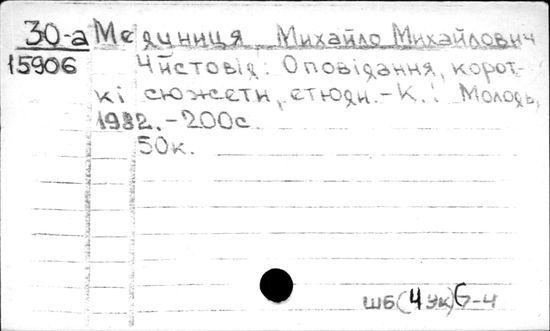 30-а Медуниця Михайло Михайлович
15906 Чистовід: Оповідання, корот-
кі сюжети, етюди. - К.: Молодь,
1982. - 200с.
50к.
ШБ(4Ук)6-4